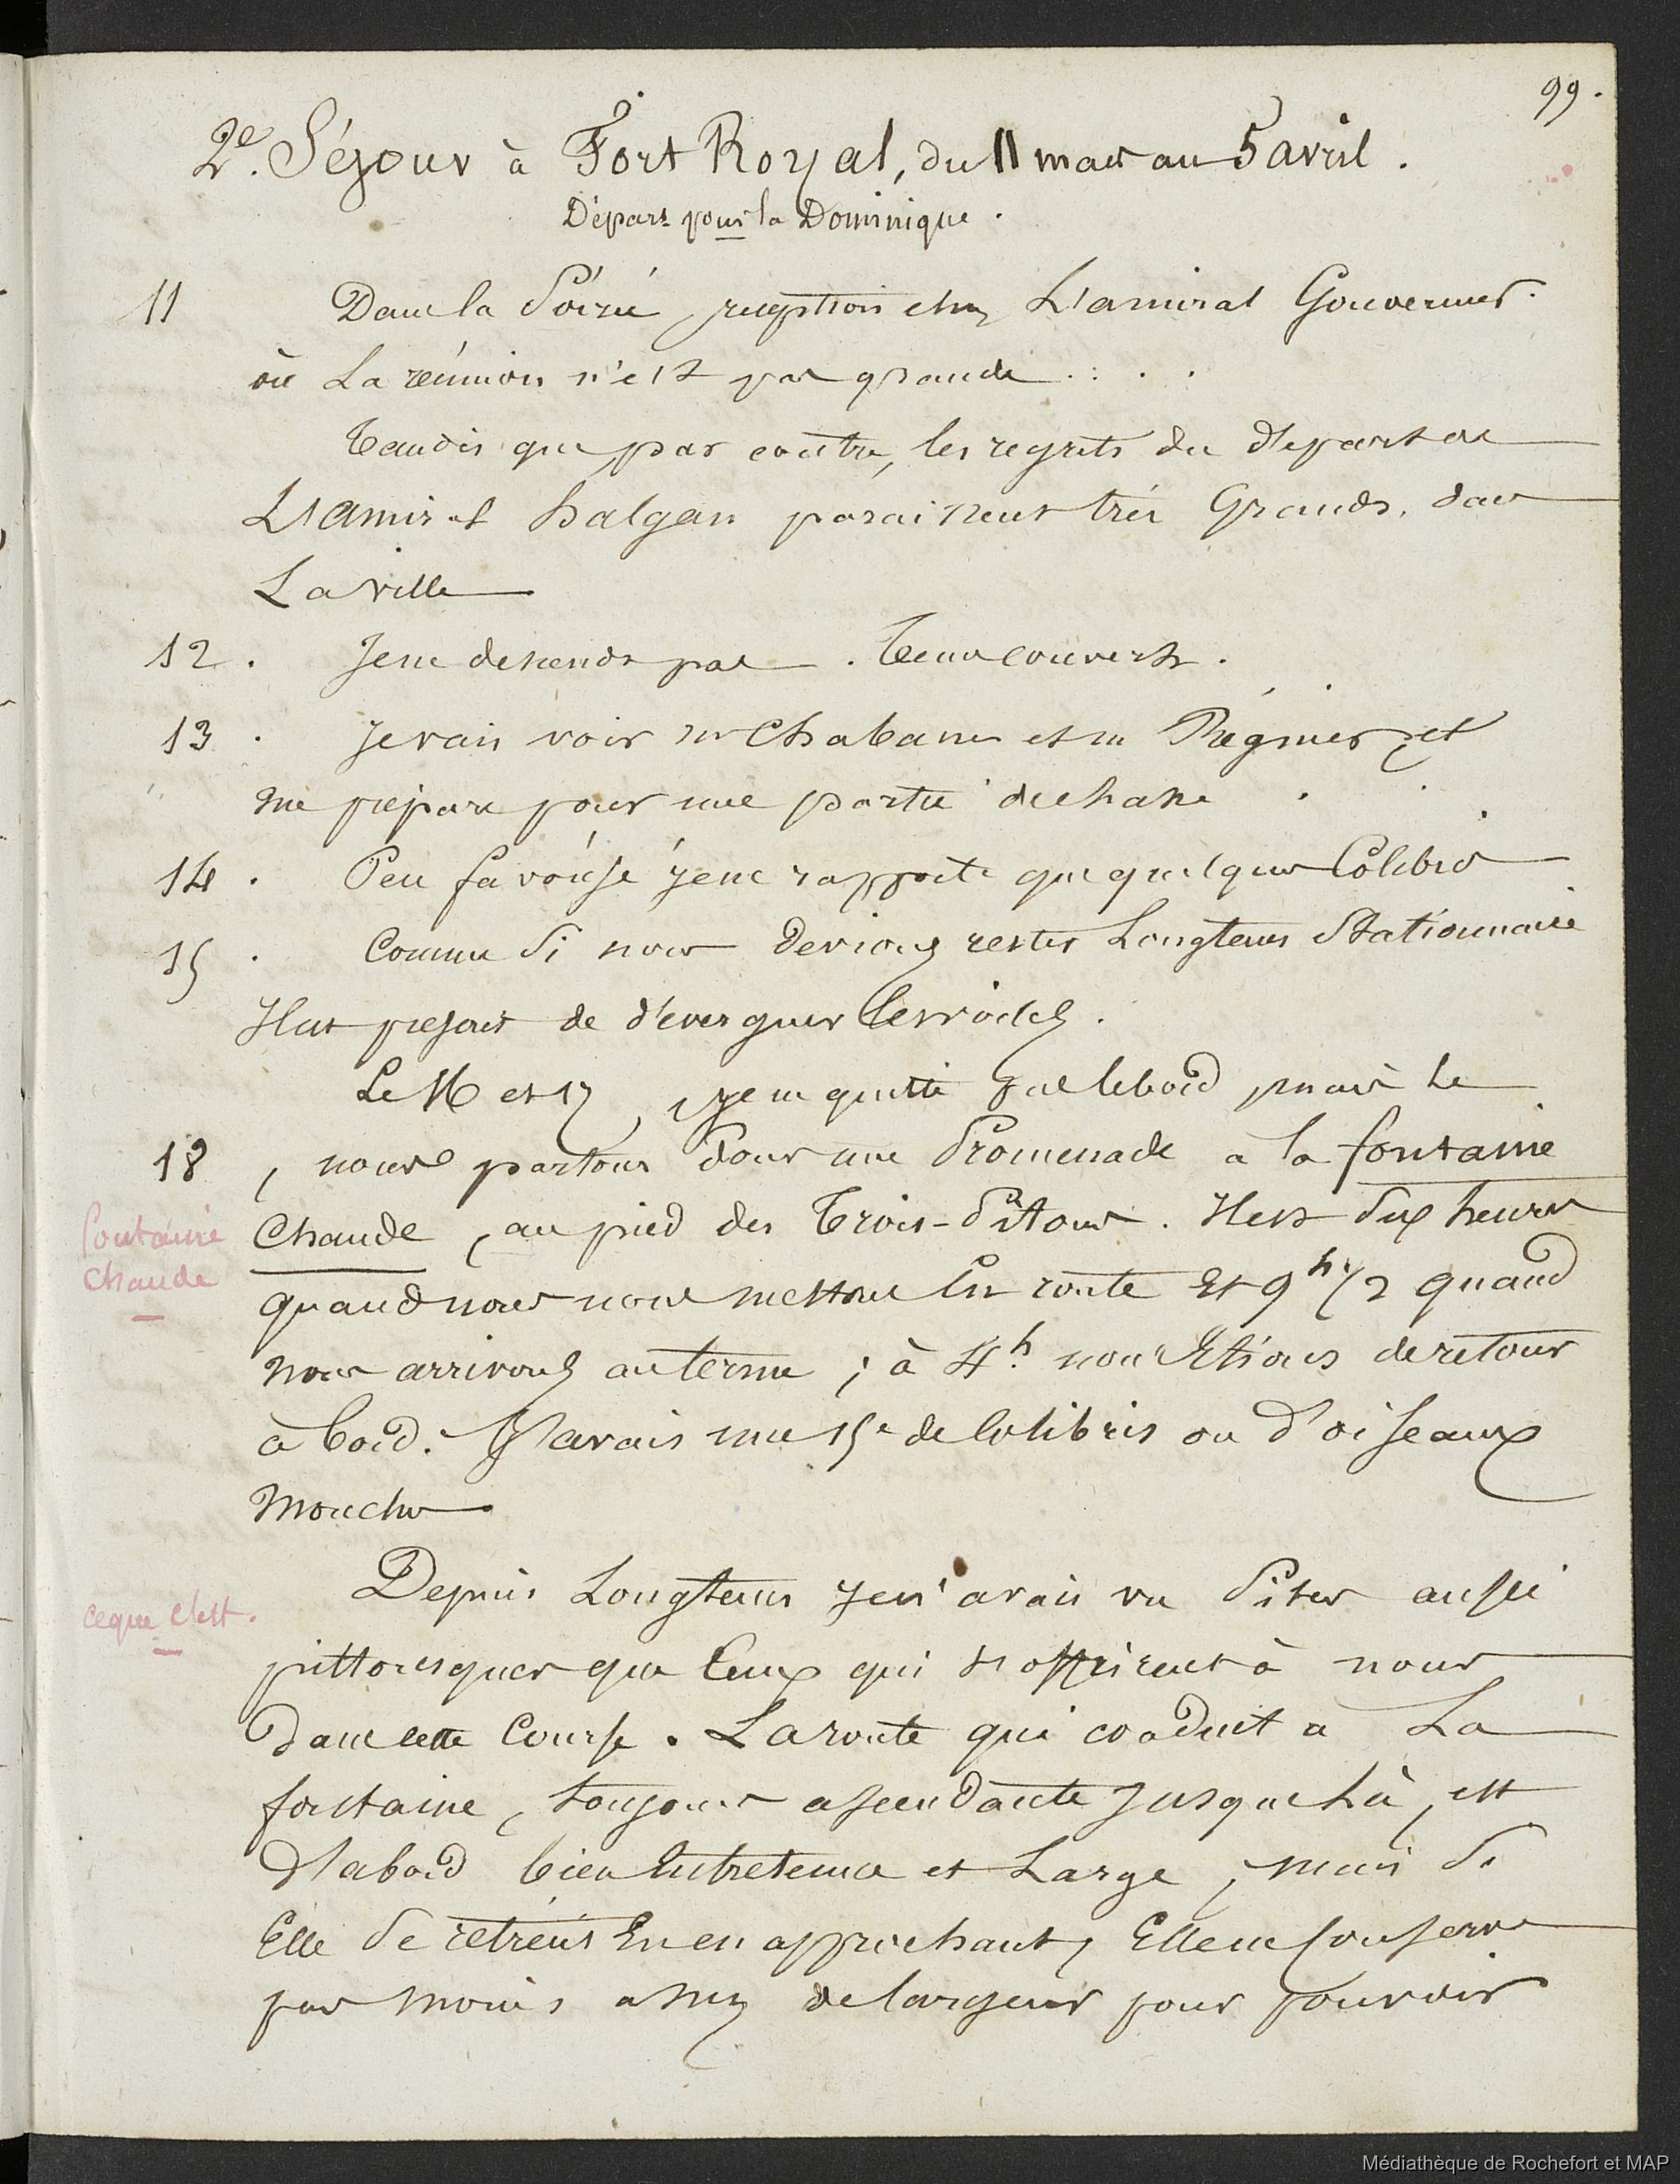 99.
2e. Séjour à Fort Royal, du 11 mars au 5 avril.
Départ pour la Dominique.
11 Dans la Soirée, reception chez L'amiral Gouverneur.
où La réunion n'est pas grande . . . .
Tandis que par contre, les regrets du départ de
L'amiral halgan paraissent très Grands, dans
La ville
12. Je ne descends pas. Tems couvert.
13. Je vais voir mr Chabanne et m Régnier, et
me prépare pour une partie de chasse.
14. Peu favorisé je ne rapporte que quelques Colibris
15. Comme Si nous devions rester Longtems Stationnaire
Il est prescrit de déverguer les voiles.
Le 16 et 17, je ne quitte pas le bord, mais le
18, nous partons Pour une Promenade a la fontaine
Chaude, au pied des Trois-Pitons. Il est Six heures
fontaine
chaude
quand nous nous mettons En route Et 9h 1/2 quand
nous arrivons au terme; à 4h. nous Etions de retour
à bord. J'avais une 15e de Colibris ou d'oiseaux
Mouches
Depuis Longtems je n'avais vu Sites aussi
ce que c'est.
pittoresques que Ceux qui s'offrirent à nous
Dans cette Course. La route qui conduit a La
fontaine, toujours ascendante jusque Là, est
d'abord bien Entretenue et Large, mais Si
Elle Se rétrécis En en approchant, Elle ne Conserve
pas moins assez de largeur pour pouvoir
Médiathèque de Rochefort et MAP